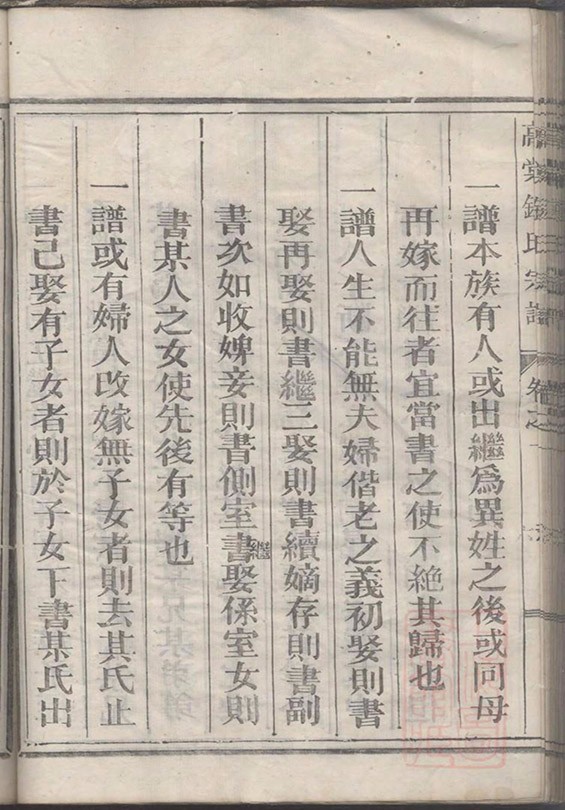 氏宗譜 卷之一
一譜本族有人或出繼爲異姓之後或同母
再嫁而往者宜當書之使不絶其歸也
一譜人生不能無夫婦偕老之義初娶則書
娶再娶則書繼三娶則書續嫡存則書副
書次如收婢妾則書側室書繼娶係室女則
書某人之女使先後有等也
一譜或有婦人改嫁無子女者則去其氏止
書已娶有子女者則於子女下書某氏出